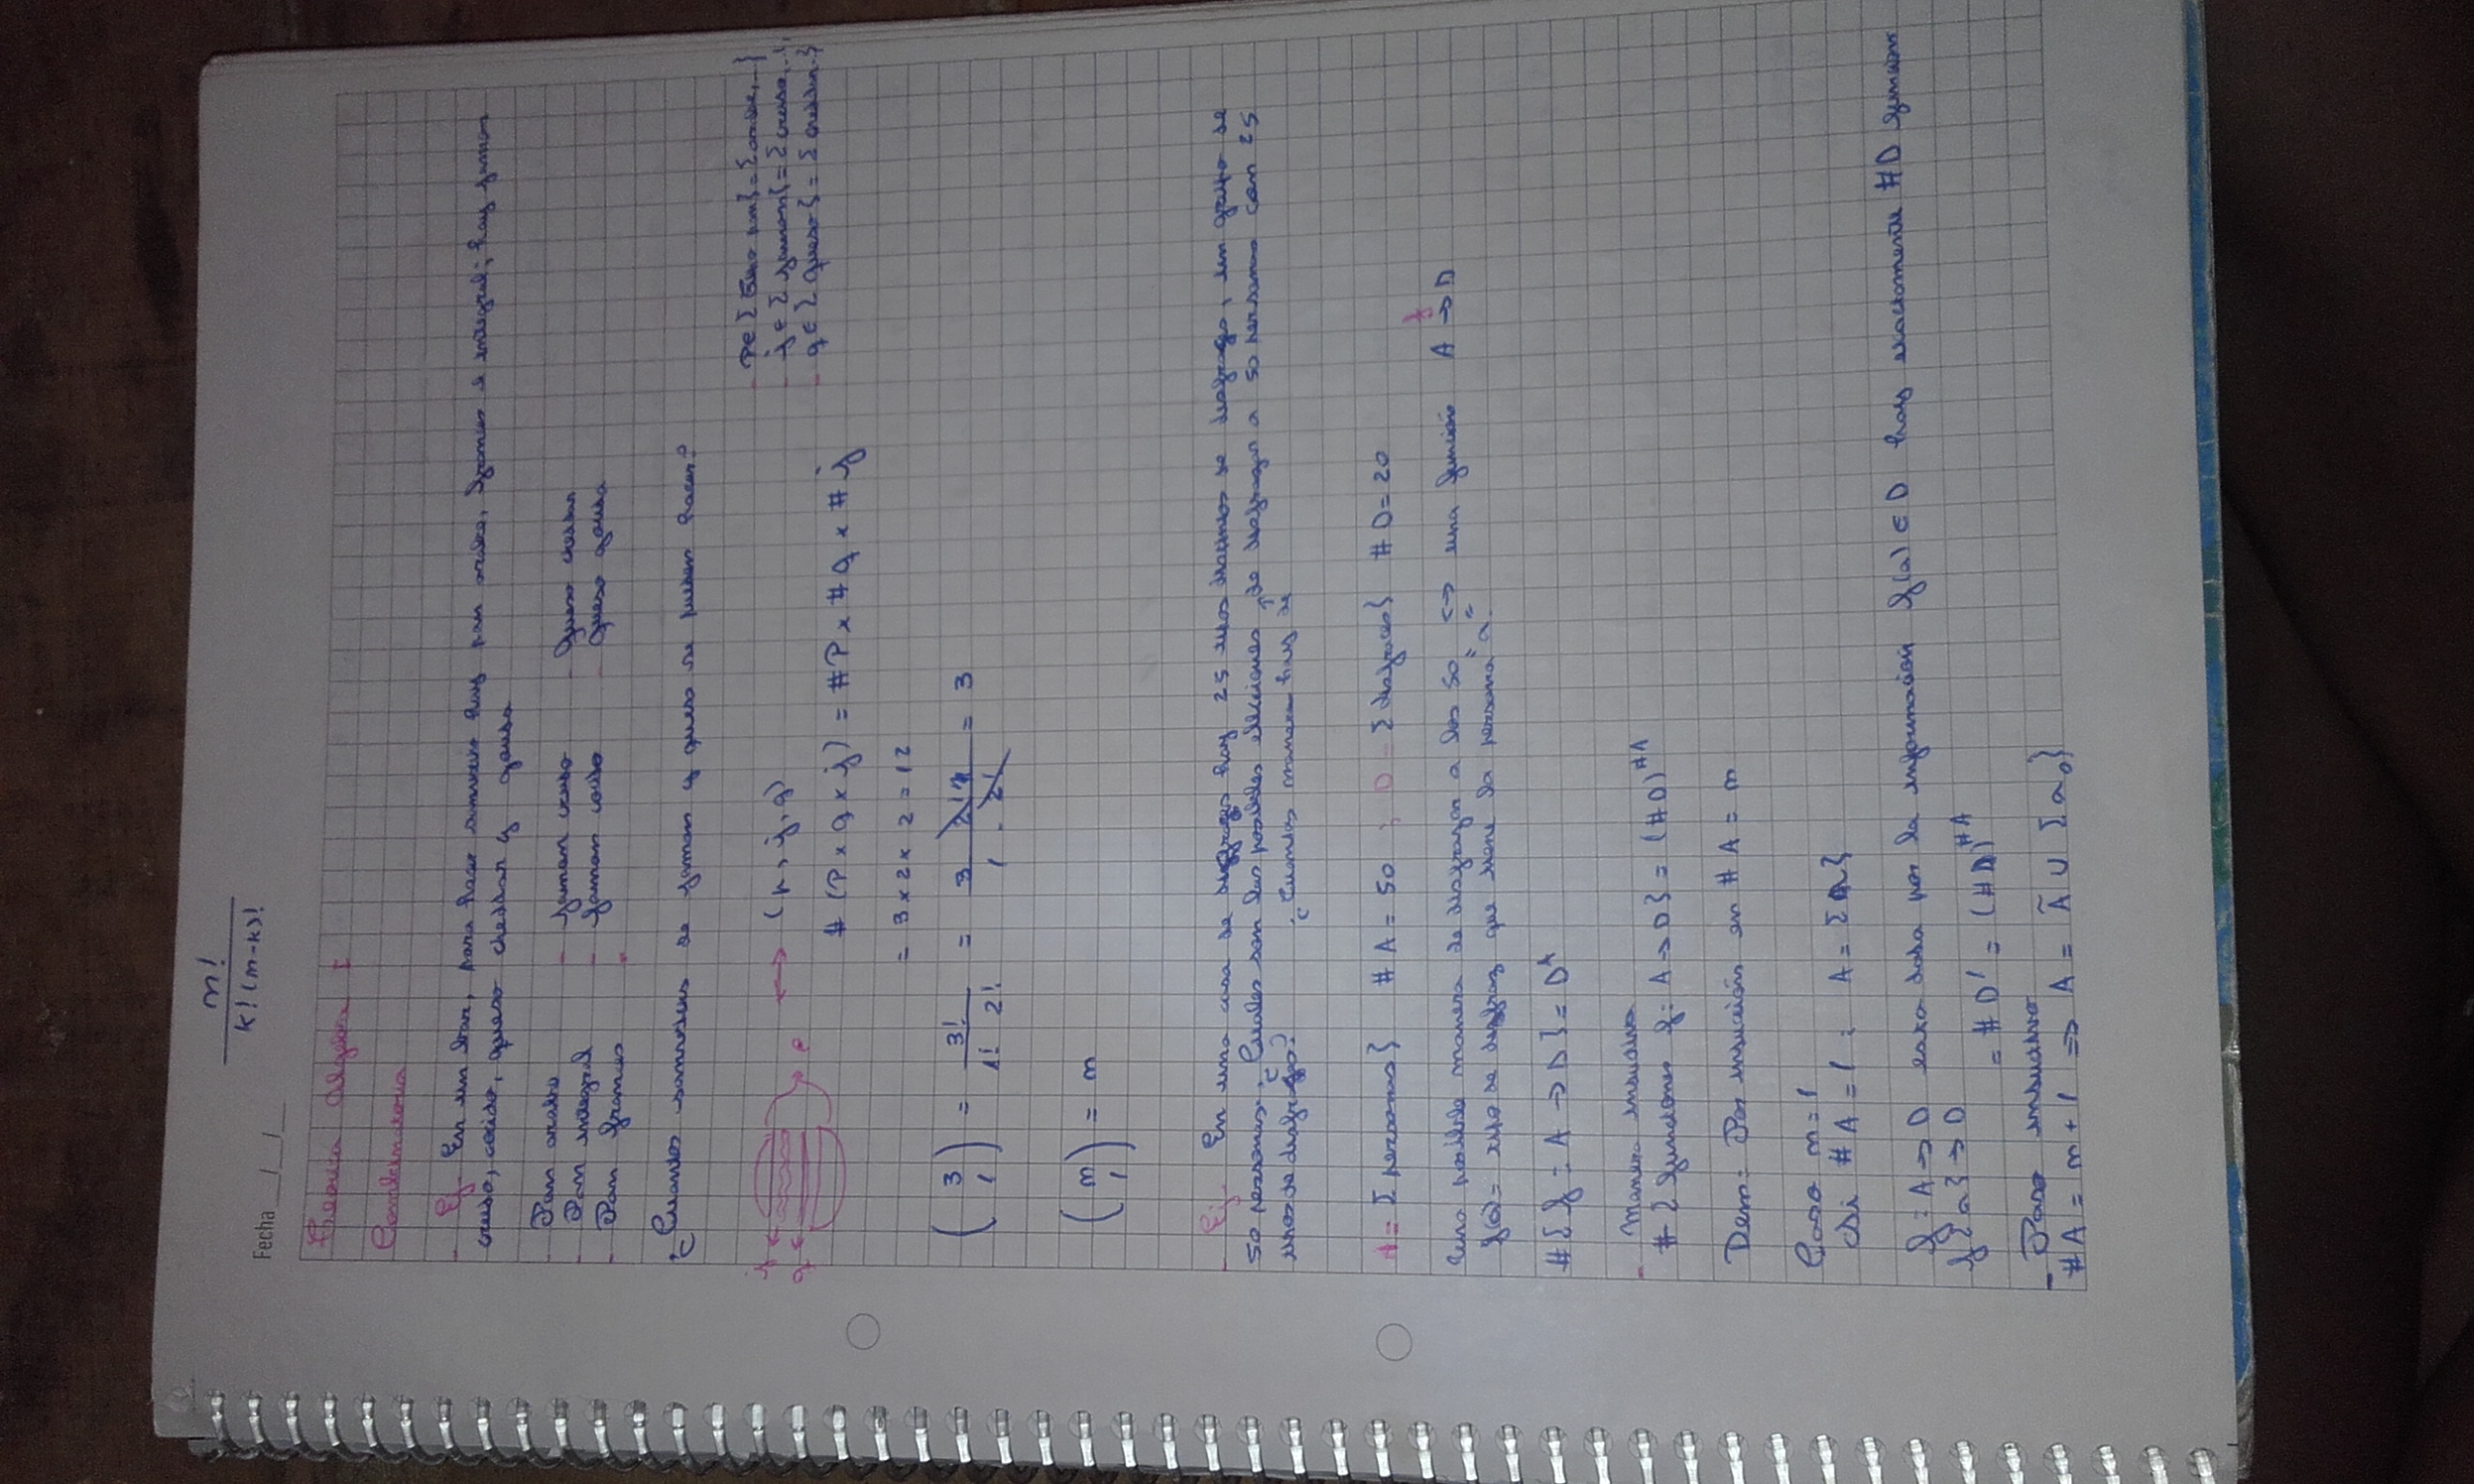 m!
k! (m-k)!
Fecha __/__/__
Teorica Algebra I
Combinatoria
- Ej- En un bar, para hacer hay pan arabe, frances e integral; hay jamon
crudo, cocido, queso cheddar y gouda
- Pan arabe - Jamon crudo - Queso cheddar
- Pan integral - Jamon cocido - Queso gouda
- Pan frances -
¿Cuantos de jamon y queso se pueden hacer?
j
q p ↔ (p, j, q)
- P∈ { pan} = { ...}
- j ∈ { jamon} = {crudo,...},
- q ∈ { queso} = {cheddar..}
# (P x q x j) = #P x #q x #j
= 3 x 2 x 2 = 12
(3 1) = 3! / 1! 2! = 3 2! / 1 . 2! = 3
(m 1) = m
- Ej- En una casa de disfrazes hay 25 tipos distintos de disfrazes, un grupo de
50 personas. ¿Cuales son las posibles elecciones de disfrazar a 50 personas con 25
tipos de disfrazes? ¿Cuantas maneras hay de
A = {personas} # A = 50 ; D = {disfraces} # D = 20
Una posible manera de disfrazar a los 50 ↔ una función A →f D
f(a) = tipo de disfraz que tiene la persona "a"
# {f : A → D} = D^A
- Manera inductiva
# {funciones f: A → D} = (#D)^#A
Dem: Por inducción en # A = m
Caso m = 1
Si # A = 1 : A = {a}
f : A → D esta dada por la información f(a) ∈ D hay exactamente #D
f {a} → D
= # D^1 = (#D)^#A
- Paso inductivo
#A = m + 1 ⇒ A = Ã ∪ {a₀}